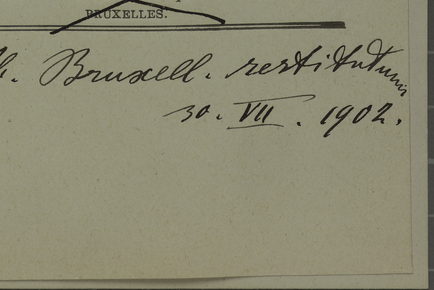 BRUXELLES.
h. Bruxell. restitutum
30. VII. 1902.